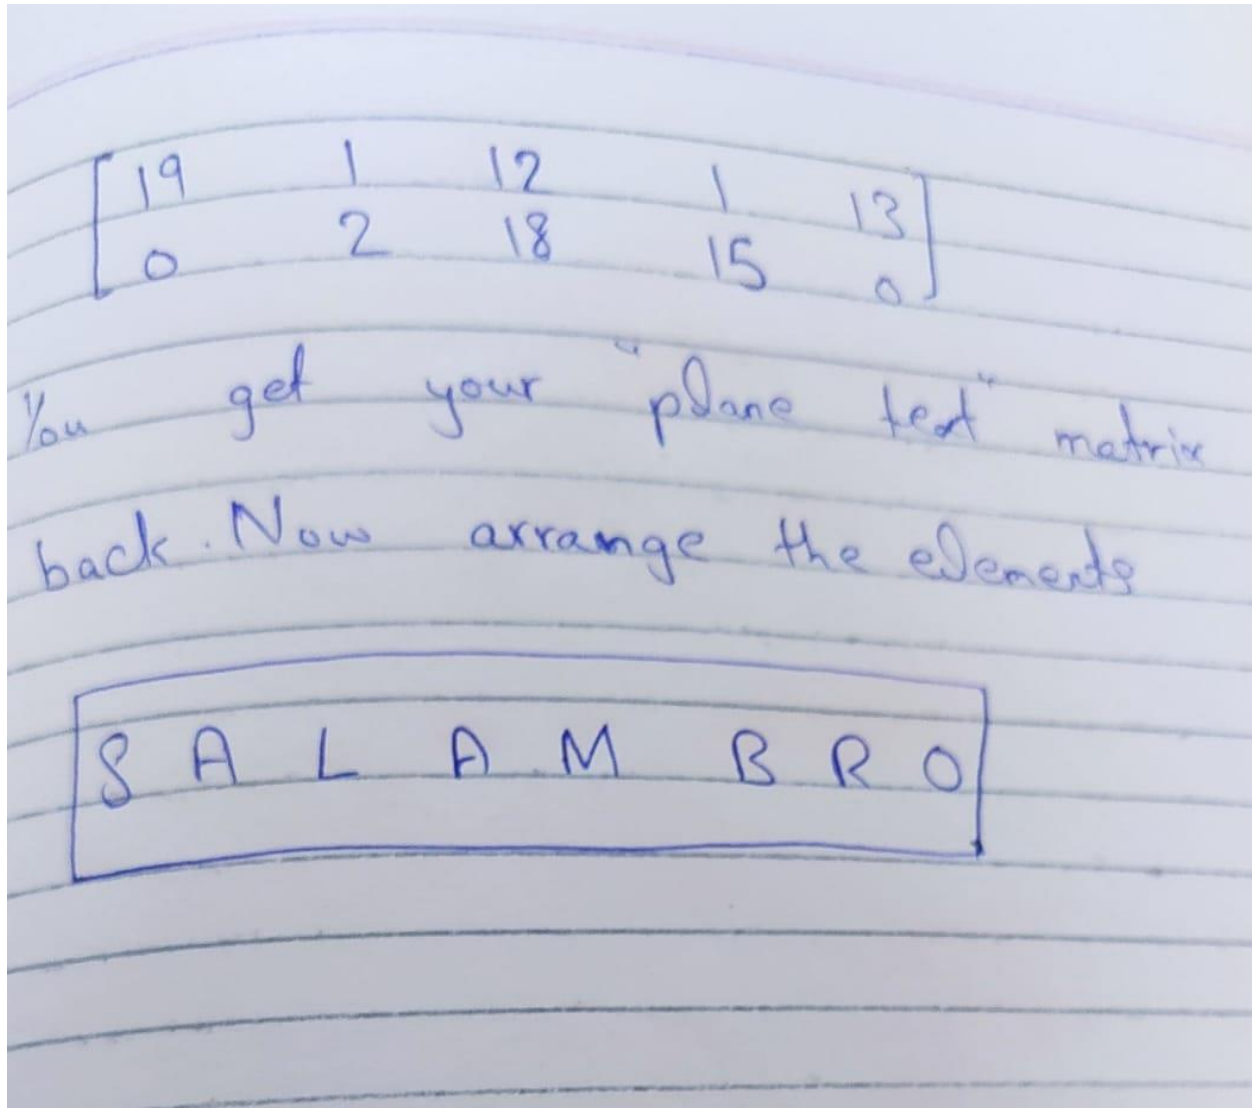 19 1 12 1 13
0 2 18 15 0
You get your "plane text" matrix
back. Now arrange the elements
S A L A M B R O